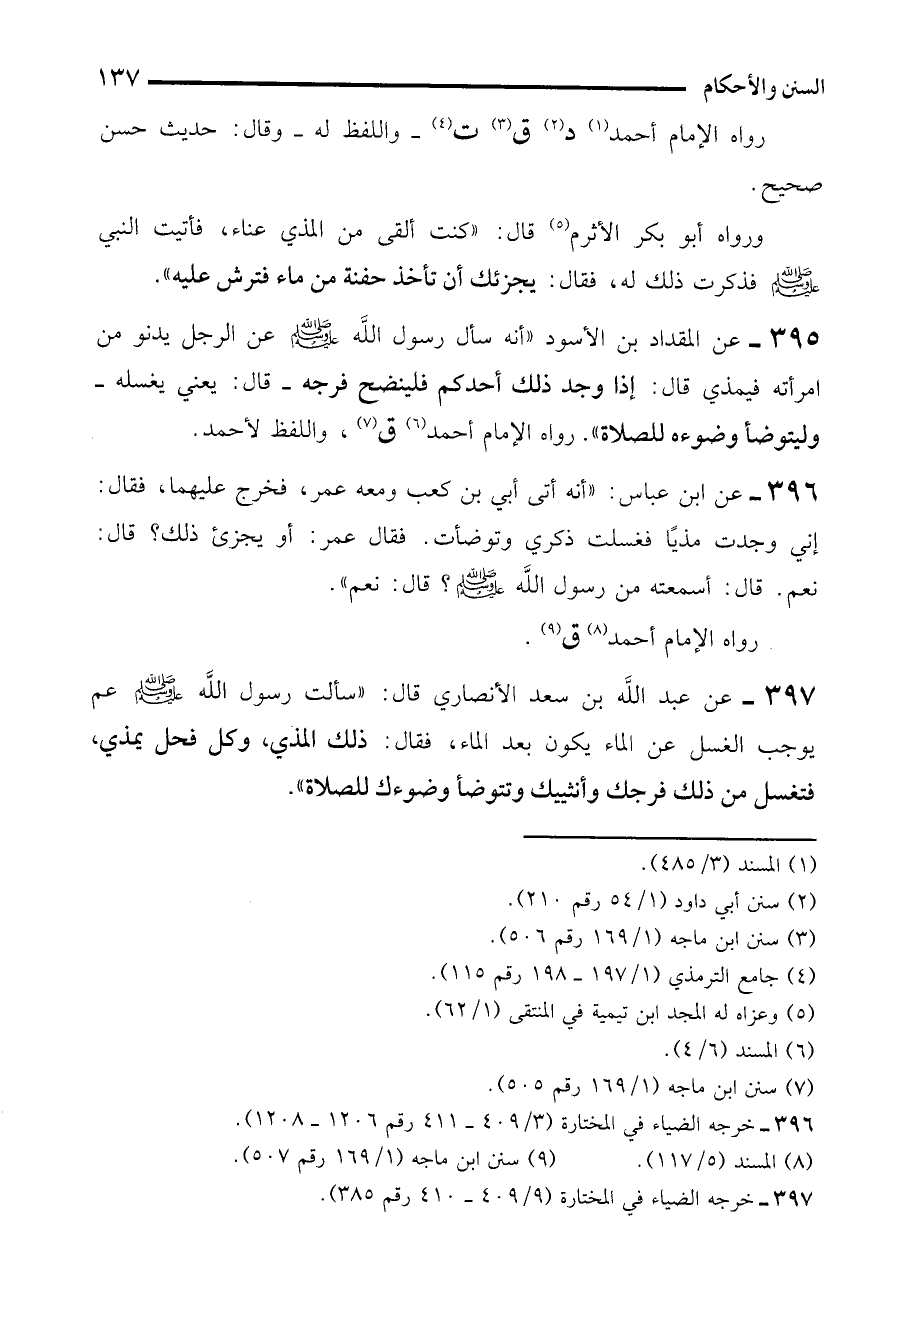 السنن والأحكام ١٣٧
رواه الإمام أحمد(١) د(٢) ق(٣) ت(٤) ـ واللفظ له ـ وقال: حديث حسن
صحيح.
ورواه أبو بكر الأثرم(٥) قال: «كنت ألقى من المذي عناء، فأتيت النبي
ﷺ فذكرت ذلك له، فقال: يجزئك أن تأخذ حفنة من ماء فترش عليه».
٣٩٥ ـ عن المقداد بن الأسود «أنه سأل رسول اللَّه ﷺ عن الرجل يدنو من
امرأته فيمذي قال: إذا وجد ذلك أحدكم فلينضح فرجه ـ قال: يعني يغسله ـ
وليتوضأ وضوءه للصلاة». رواه الإمام أحمد(٦) ق(٧)، واللفظ لأحمد.
٣٩٦ ـ عن ابن عباس: «أنه أتى أبي بن كعب ومعه عمر، فخرج عليهما، فقال:
إني وجدت مذيًا فغسلت ذكري وتوضأت. فقال عمر: أو يجزئ ذلك؟ قال:
نعم. قال: أسمعته من رسول اللَّه ﷺ؟ قال: نعم».
رواه الإمام أحمد(٨) ق(٩).
٣٩٧ ـ عن عبد اللَّه بن سعد الأنصاري قال: «سألت رسول اللَّه ﷺ عم
يوجب الغسل عن الماء يكون بعد الماء، فقال: ذلك المذي، وكل فحل يمذي،
فتغسل من ذلك فرجك وأنثييك وتتوضأ وضوءك للصلاة».
(١) المسند (٣/ ٤٨٥).
(٢) سنن أبي داود (١/ ٥٤ رقم ٢١٠).
(٣) سنن ابن ماجه (١/ ١٦٩ رقم ٥٠٦).
(٤) جامع الترمذي (١/ ١٩٧ ـ ١٩٨ رقم ١١٥).
(٥) وعزاه له المجد ابن تيمية في المنتقى (١/ ٦٢).
(٦) المسند (٦/ ٤).
(٧) سنن ابن ماجه (١/ ١٦٩ رقم ٥٠٥).
٣٩٦ ـ خرجه الضياء في المختارة (٣/ ٤٠٩ ـ ٤١١ رقم ١٢٠٦ ـ ١٢٠٨).
(٨) المسند (٥/ ١١٧). (٩) سنن ابن ماجه (١/ ١٦٩ رقم ٥٠٧).
٣٩٧ ـ خرجه الضياء في المختارة (٩/ ٤٠٩ ـ ٤١٠ رقم ٣٨٥).